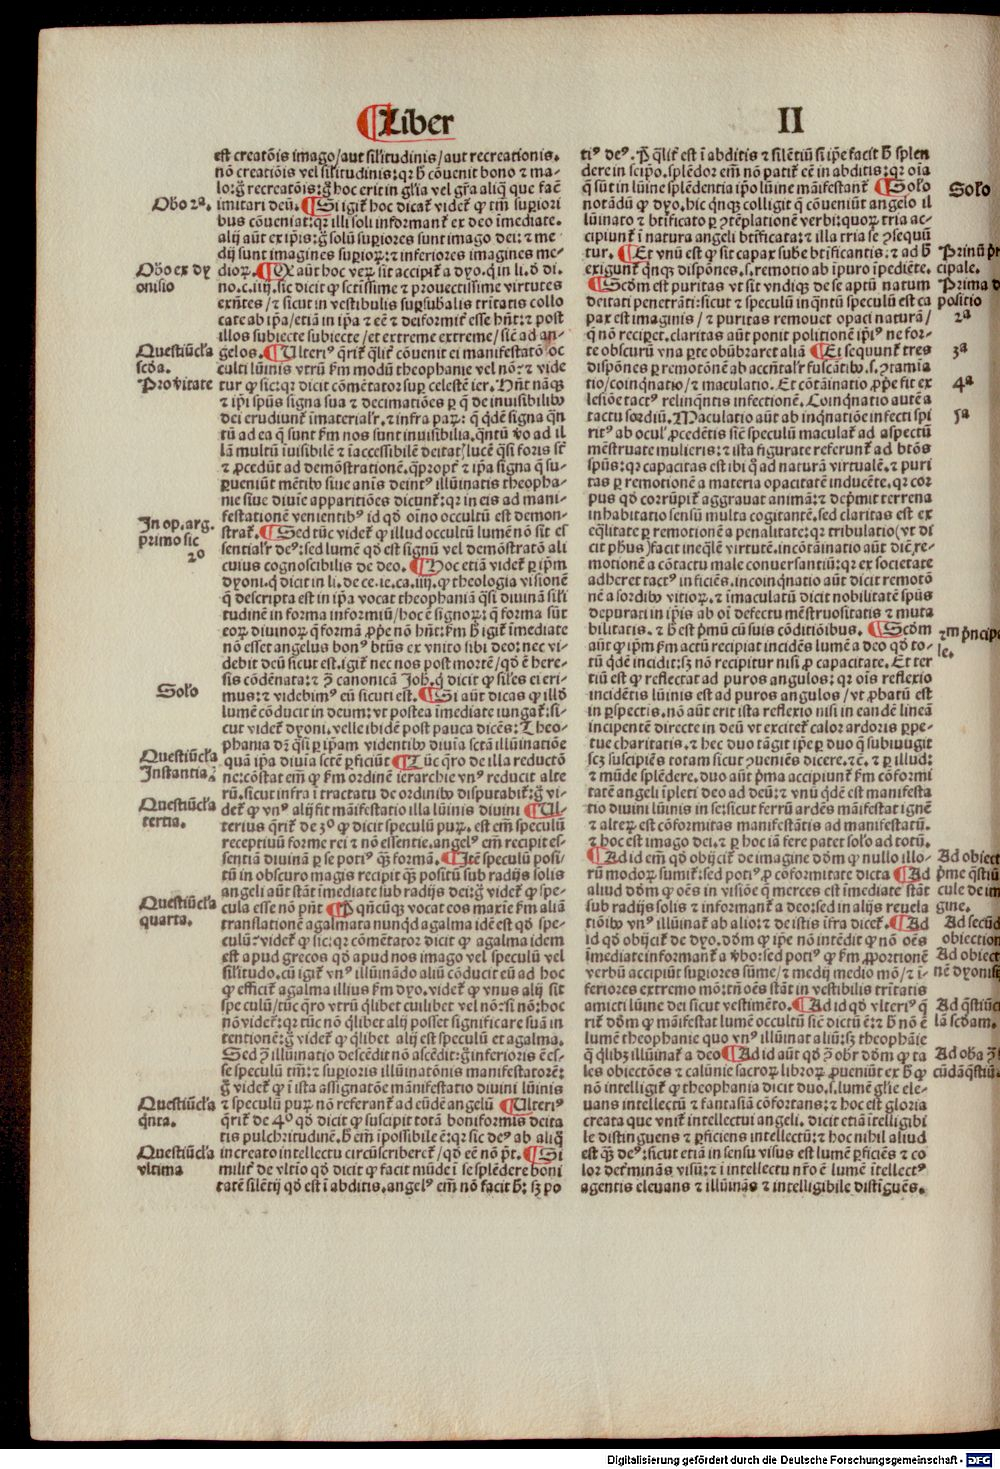 Liber
II
est creatõis imago/aut silitudinis/aut recreationis.
nõ creatiõis vel silitudinis: qr h̃ cõuenit bono ⁊ ma-
lo: g̃ recreatõis: g̃ hoc erit in gl̃ia vel gr̃a aliq̃ que faẽ
Obo 2ª.
imitari deũ. ¶ Si igit̃ hoc dicat̃ videt̃ ꝙ tm̃ supiori
bus cõueniat: qr illi soli informant̃ ex deo ĩmediate.
alij aũt ex ip̃is: g̃ solũ supiores sunt imago dei: ⁊ me
dij sunt imagines supioꝝ: ⁊ inferiores imagines me-
Obo ex dy
onisio
dioꝝ. ¶ Q̃ aũt hoc veꝝ sit accipit̃ a dyo. q̃ in li. d̃ di.
no. c. iiij. sic dicit ꝙ sctissime ⁊ prouectissime virtutes
exñtes/ ⁊ sicut in vestibulis sup̃subalis trĩtatis collo
cate ab ip̃a/etiã in ip̃a ⁊ eẽ ⁊ deiformit̃ esse hñt: ⁊ post
illos subiecte subiecte/et extreme extreme/ siẽ ad an-
Questiũcl̃a
scđa.
gelos. ¶ Ulteriꝰ q̃rit̃ q̃lit̃ cõuenit ei manifestatõ oc
culti lũinis vtrũ ẜm modũ theophanie vel nõ: ⁊ vide
Pro ṽitate
tur ꝙ sic: qr dicit cõmẽtator sup celestẽ ier. Hñt nãqꝫ
⁊ ip̃i sp̃us signa sua ⁊ decimatiões p q̃ de inuisibilibꝰ
dei erudiunt̃ ĩmaterialr̃. ⁊ infra paꝝ: q̃ q̃dẽ signa q̃n
tũ ad ea q̃ sunt ẜm nos sunt inuisibilia. q̃ntũ ṽo ad il
lã multũ ĩuisibilẽ ⁊ ĩaccessibilẽ deitat̃ lucẽ q̃si foris st̃
⁊ ꝓcedũt ad demõstrationẽ. q̃propt̃ ⁊ ip̃a signa q̃ su-
perueniũt mẽtibꝰ siue anis deintꝰ illũinatis theopha-
nie siue diuĩe apparitiões dicunt̃: qr in eis ad mani-
In op. arg.
primo sic
2º
festationẽ venientibꝰ id qđ oĩno occultũ est demon-
strat̃. ¶ Sed tũc videt̃ ꝙ illud occultũ lumẽ nõ sit es
sentialr̃ deꝰ: sed lumẽ qđ est signũ vel demõstratõ ali
cuius cognoscibilis de deo. ¶ Hoc etiã videt̃ p ip̃m
dyoni. q̃ dicit in li. de ce. ie. ca. iiij. ꝙ theologia visionẽ
q̃ descripta est in ip̃a vocat theophaniã q̃si diuinã sili
tudinẽ in forma informiũ/hoc ẽ signoꝝ: q̃ forma sũt
eoꝝ diuinoꝝ q̃ formã ꝓpe nõ hñt: ẜm h̃ igit̃ ĩmediate
nõ esset angelus bonꝰ btũs ex vnito sibi deo: nec vi-
debit deũ sicut est. igit̃ nec nos post mortẽ/qđ ẽ here-
sis cõdẽnata: ⁊ ꝯ̃ canonicã Joh. q̃ dicit ꝙ siles ei eri-
Solo
mus: ⁊ videbimꝰ eũ sicuti est. ¶ Si aũt dicas ꝙ illđ
lumẽ cõducit in deum: vt postea ĩmediate iungat̃: si-
cut videt̃ dyoni. velle ibidẽ post pauca dicẽs: Theo-
phania dr̃ q̃si p ip̃am videntibꝰ diuĩa sctã illũinatiõe
Questiũcl̃a
Instantia
qua ip̃a diuĩa sctẽ pficiũt ¶ Tũc qro de illa reductõ
ne: cõstat em̃ ꝙ ẜm ordinẽ ierarchie vnꝰ reducit alte
rũ. sicut infra ĩ tractatu de ordinibꝰ disputabit̃: g̃ vi-
Questiũcl̃a
tertia.
det̃ ꝙ vnꝰ alij fit mãifestatio illa lũinis diuini ¶ Ul-
terius q̃rit̃ de 3º ꝙ dicit speculũ puꝝ. est em̃ speculũ
receptiuũ forme rei ⁊ nõ essentie. angelꝰ em̃ recipit es-
sentiã diuinã p se potiꝰ q̃ꝫ formã. ¶ Itẽ speculũ posi-
tũ in obscuro magis recipit q̃ꝫ positũ sub radijs solis
angeli aũt stãt ĩmediate sub radijs dei: g̃ videt̃ ꝙ spe-
Questiũcl̃a
quarta.
cula esse nõ pñt ¶ P̃ qñcũqꝫ vocat eos maxĩe ẜm aliã
translationẽ agalmata nunqđ agalma idẽ est qđ spe-
culũ: videt̃ ꝙ sic: qr cõmẽtator dicit ꝙ agalma idem
est apud grecos qđ apud nos imago vel speculũ vel
silitudo. cũ igit̃ vnꝰ illũinãdo aliũ cõducit eũ ad hoc
ꝙ efficit̃ agalma illius ẜm dyo. videt̃ ꝙ vnus alij sit
speculũ/tũc qro vtrũ q̃libet cuilibet vel nõ: si nõ: hoc
nõ videt̃: qr tũc nõ q̃libet alij posset significare suã in
tentionẽ: g̃ videt̃ ꝙ q̃libet alij est speculũ et agalma.
Sed ꝯ̃ illũinatio descẽdit nõ ascẽdit: g̃ inferioris ẽ es-
se speculũ tm̃: ⁊ supioris illũinatõnis manifestatorẽ:
g̃ videt̃ ꝙ ĩ ista assignatõe mãnifestatio diuini lũinis
Questiũcl̃a
q̃nta.
⁊ speculũ puꝝ nõ referant̃ ad eũdẽ angelũ ¶ Ulteriꝰ
q̃rit̃ de 4º qđ dicit ꝙ suscipit totã boniformis deita
tis pulchritudinẽ. h̃ em̃ ĩpossibile ẽ: qr sic deꝰ ab aliq̃
Questiũcl̃a
vltima
increato intellectu circũscriberet̃/qđ eẽ nõ põt. ¶ Si
milit̃ de vltĩo qđ dicit ꝙ facit mũde ĩ se splẽdere boni
tatẽ silẽtij qđ est ĩ abditis. angelꝰ em̃ nõ facit h̃: sꝫ po
tiꝰ deꝰ. P̃ q̃lit̃ est ĩ abditis ⁊ silẽtiũ si ip̃e facit h̃ splen
dere in seip̃o. splẽdor em̃ nõ patit̃ eẽ in abditis: qr oĩa
q̃ sũt in lũine splẽdentia ip̃o lũine mãifestant̃ ¶ Solo
Solo
notãdũ ꝙ dyo. hic q̃nqꝫ colligit q̃ cõueniũt angelo il
lũinato ⁊ btificato p ꝯtẽplationẽ verbi: quoꝝ tria ac-
cipiunt̃ ĩ natura angeli btificata: ⁊ illa tria se ꝯsequũ
Primũ p̃n
cipale.
tur. ¶ Et vnũ est ꝙ sit capax sube btificantis: ⁊ ad h̃
exigunt̃ q̃nqꝫ dispõnes. s. remotio ab ĩpuro ĩpediẽte.
Prima d
positio
¶ Scđm est puritas vt sit vndiqꝫ de se aptũ natum
deitati penetrãti: sicut ⁊ speculũ inq̃ntũ speculũ est ca
2ª
pax est imaginis / ⁊ puritas remouet opaci naturã/
q̃ nõ recipet. claritas aũt ponit politionẽ ip̃iꝰ ne for-
3ª
te obscurũ vna pte obũbraret aliã ¶ Ei sequunt̃ tres
dispõnes p remotõnẽ ab accñtalr̃ fuscãtibꝰ. s. ꝯtamia
4ª
tio/coinqnatio/ ⁊ maculatio. Et cõtãinatio ꝓpe fit ex
lesiõe tactꝰ relinqntis infectionẽ. Coinqnatio autẽ a
5ª
tactu sordiũ. Maculatio aũt ab inqnatiõe infecti spi
ritꝰ ab ocul̃ ꝓcedẽtis siẽ speculũ maculat̃ ad aspectũ
mẽstruate mulieris: ⁊ ista figurate referunt̃ ad btõs
sp̃us: qr capacitas est ibi q̃ ad naturã virtualẽ. ⁊ puri
tas p remotionẽ a materia opacitatẽ inducẽte. qr cor
pus qđ corrũpit̃ aggrauat animã: ⁊ dep̃mit terrena
inhabitatio sensũ multa cogitantẽ. sed claritas est ex
eq̃litate p remotionẽ a penalitate: qr tribulatio(vt di
cit pħus)facit ineq̃lẽ virtutẽ. incõtãinatio aũt diẽ re-
motionẽ a cõtactu male conuersantiũ: qr ex societate
adheret tactꝰ inficiẽs. incoinqnatio aũt dicit remotõ
nẽ a sordibꝰ vitioꝝ. ⁊ ĩmaculatũ dicit nobilitatẽ sp̃us
depurati in ip̃is ab oĩ defectu mẽstruositatis ⁊ muta
2m p̃ncipa
le.
bilitatis. ⁊ h̃ est p̃mũ cũ suis cõditiõibus. ¶ Scđm
aũt ꝙ ip̃m ẜm actũ recipiat incidẽs lumẽ a deo qđ to-
tũ q̃dẽ incidit: sꝫ nõ recipitur nisi ꝓ capacitate. Et ter
tiũ est ꝙ reflectat ad puros angulos: qr oĩs reflexio
incidẽtis lũinis est ad puros angulos / vt ꝓbatũ est
in pspectis. nõ aũt erit ista reflexio nisi in eandẽ lineã
incipentẽ directe in deũ vt excitet̃ calor ardoris ppe-
tue charitatis. ⁊ hec duo tãgit ip̃e p duo q̃ subiuugit
scꝫ suscipiẽs totam sicut ꝯueniẽs dicere. ⁊ẽ. ⁊ p illud:
⁊ mũde splẽdere. duo aũt p̃ma accipiunt̃ ẜm cõformi
tatẽ angeli ĩpleti deo ad deũ: ⁊ vnũ q̃dẽ est manifesta
tio diuini lũinis in se: sicut ferrũ ardẽs mãifestat ignẽ
⁊ alteꝝ est cõformitas manifestãtis ad manifestatũ.
⁊ hoc est imago dei. ⁊ p hoc iã fere patet solo ad totũ.
Ad obiect
p̃me q̃stiũ
cule de im
gine.
¶ Ad id em̃ qđ obijcit̃ de imagine dõm ꝙ nullo illo-
rũ modoꝝ sumit̃: sed potiꝰ ꝓ cõformitate dicta ¶ Ad
aliud dõm ꝙ oẽs in visiõe q̃ merces est ĩmediate stãt
sub radijs solis ⁊ informant̃ a deo: sed in alijs reuela
Ad secũd
obiection
tiõibꝰ vnꝰ illũinat̃ ab alio: ⁊ de istis ĩfra dicet̃. ¶ Ad
id qđ obijcit̃ de dyo. dõm ꝙ ip̃e nõ intẽdit ꝙ nõ oẽs
Ad obiect
nẽ dyonisi
ĩmediate informant̃ a ṽbo: sed potiꝰ ꝙ ẜm ꝓportionẽ
verbũ accipiũt supiores sũme/ ⁊ medij medio mõ/ ⁊ ĩ-
feriores extremo mõ: tñ oẽs stãt in vestibilis trĩtatis
Ad q̃stiũc
lã scđam.
amicti lũine dei sicut vestimẽto. ¶ Ad id qđ vlteriꝰ q̃
rit̃ dõm ꝙ mãifestat lumẽ occultũ siẽ dictũ ẽ: ⁊ h̃ nõ ẽ
lumẽ theophanie quo vnꝰ illũinat aliũ: sꝫ theophãie
Ad oba ꝯ̃ se
cũdã q̃stiũ
q̃ q̃libꝫ illũinat̃ a deo ¶ Ad id aũt qđ ꝯ̃ obr̃ dõm ꝙ ta
les obiectões ⁊ calũnie sacroꝝ libroꝝ ꝓueniũt ex h̃ ꝙ
nõ intelligit̃ ꝙ theophania dicit duo. s. lumẽ gl̃ie ele-
uans intellectũ ⁊ fantasiã cõfortans: ⁊ hoc est gloria
creata que vnit̃ intellectui angeli. dicit etiã ĩtelligibi
le distinguens ⁊ pficiens intellectũ: ⁊ hoc nihil aliud
est q̃ꝫ deꝰ: sicut etiã in sensu visus est lumẽ pficiẽs ⁊ co
lor det̃minãs visũ: ⁊ ĩ intellectu nr̃o ẽ lumẽ ĩtellectꝰ
agentis eleuans ⁊ illũinãs ⁊ intelligibile distĩguẽs.
Digitalisierung gefördert durch die Deutsche Forschungsgemeinschaft - DFG